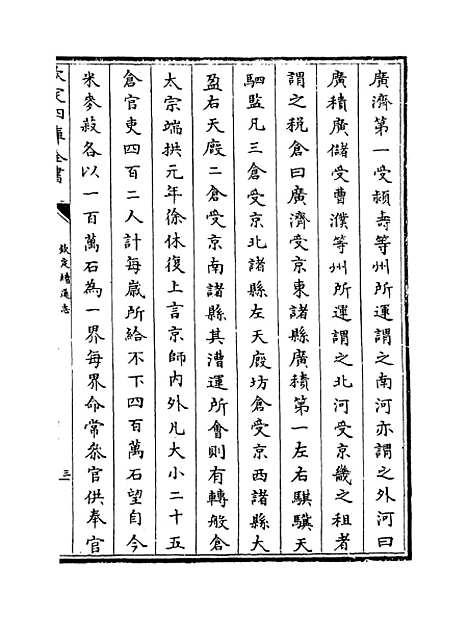 廣濟第一受潁壽等州所運謂之南河亦謂之外河曰
廣積廣儲受曹濮等州所運謂之北河受京畿之租者
謂之稅倉曰廣濟受京東諸縣廣積第一左右騏驥天
駟監凡三倉受京北諸縣左天廐坊倉受京西諸縣大
盈右天廐二倉受京南諸縣其漕運所會則有轉般倉
太宗端拱元年徐休復上言京師內外凡大小二十五
倉官吏四百二人計每歲所給不下四百萬石望自今
米麥菽各以一百萬石為一界每界命常參官供奉官
欽定四庫全書
欽定續通志
三